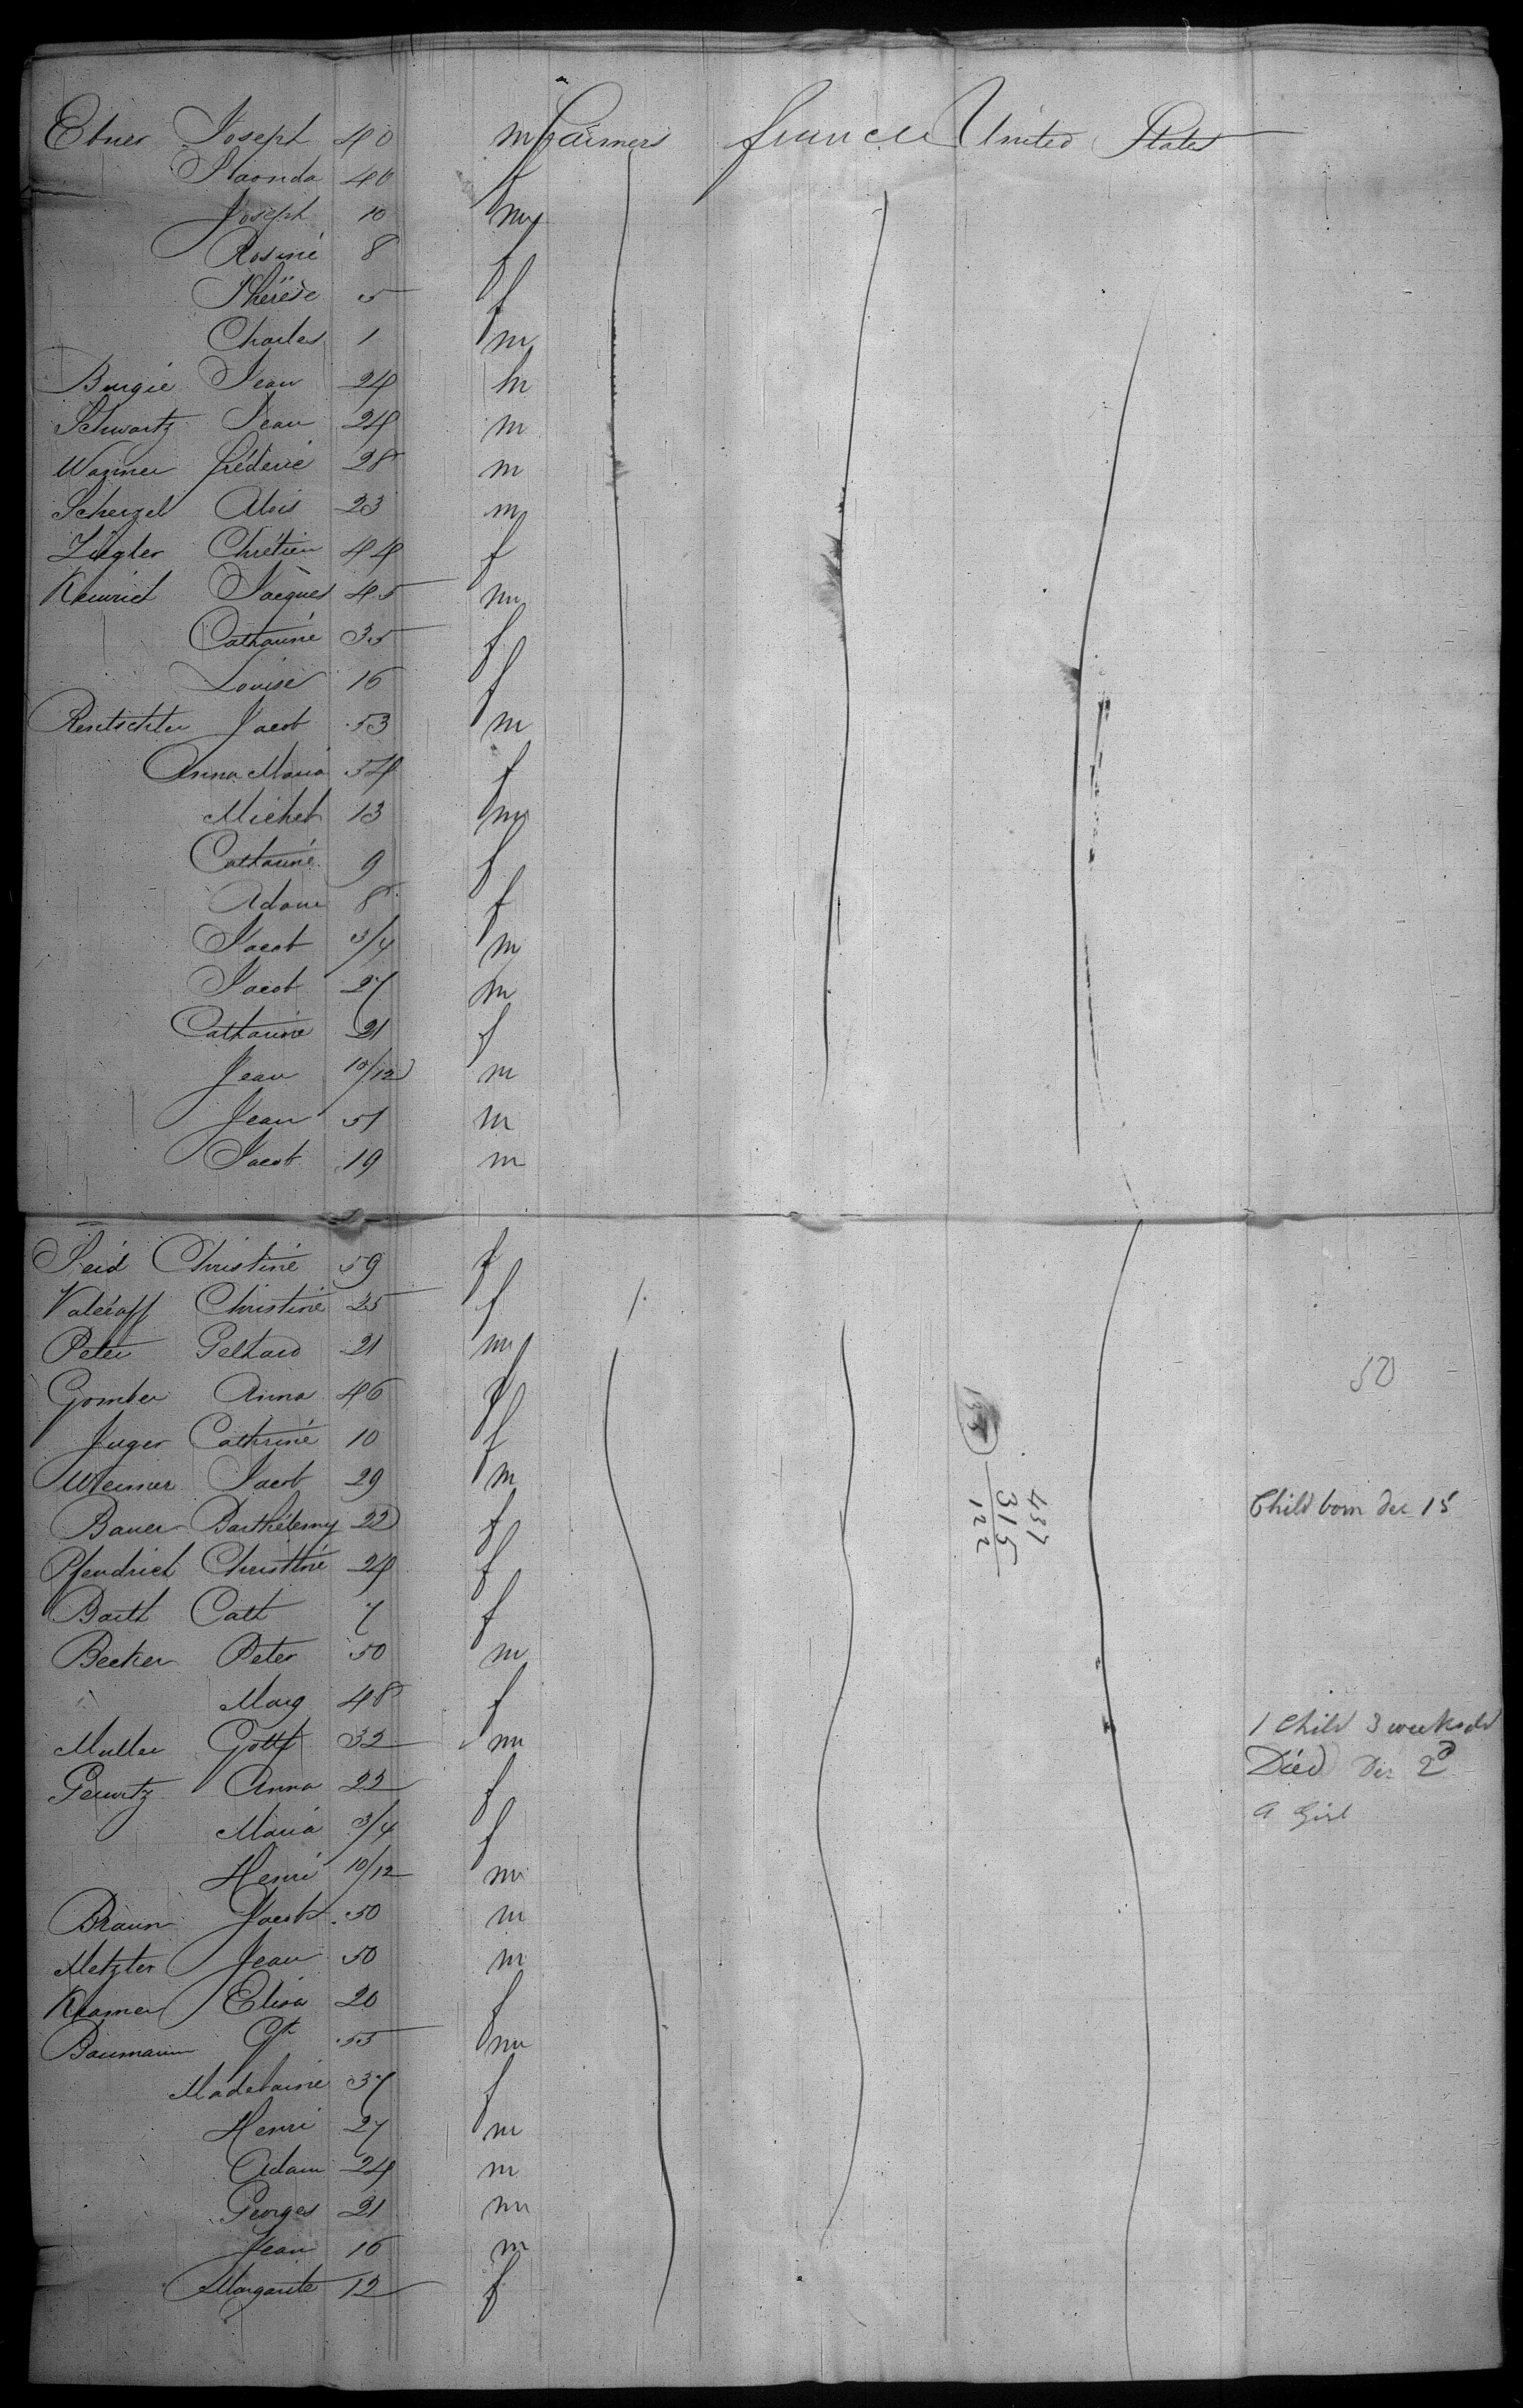 Ebner Joseph 40 m farmers france United States
40 f
Joseph 10 m
Rosine 8 f
Thérèse 5 f
Charles 1 m
Burgie Jean 24 m
Schwartz Jean 24 m
Wagner fréderic 28 m
Scherzel Alois 23 m
Ziegler Chrétien 44 f
Jacques 45 m
Catharine 35 f
Louise 16 f
Rentschler Jacob 53 m
Anna Maria 54 f
Michel 13 m
Catharine 9 f
Adam 8 f
Jacob 3/4 m
Jacob 27 m
Catharine 21 f
Jean 10/12 m
Jean 51 m
Jacob 19 m
Seid Christine 59 f
Christine 25 f
Peter 21 m
50
Gomber Anna 46 f
Juger Cathrine 10 f
Weimer Jacob 29 m
437
315
122
Bauer Barthélemy 22 f Child born dec 15
Pfendrich Christine 24 f
Barth Cath 7 f
Becker Peter 50 m
Marg 48 f
Muller Gottf 32 m 1 Child 3 weeks old
Anna 22 f Died Dec 2d
Maria 3/4 f a Girl
Henri 10/12 m
Braun Jacob 50 m
Metzler Jean 50 m
Kramer Elisa 20 f
Baumann 55 m
Madelaine 37 f
Henri 27 m
Adam 24 m
Georges 21 m
Jean 16 m
Margarite 12 f